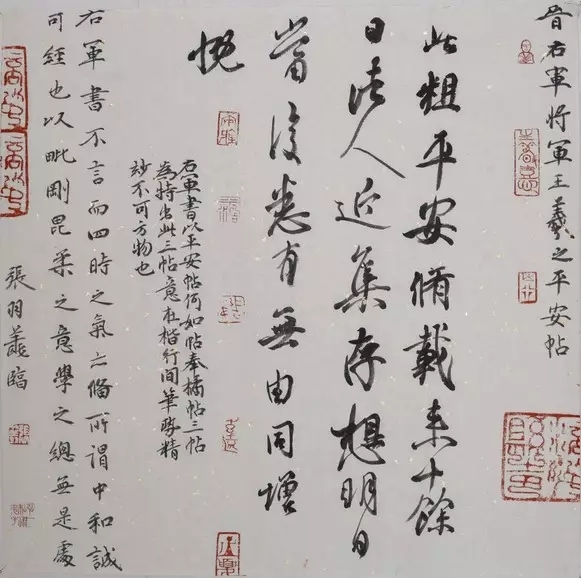 晉右軍将軍王羲之平安帖
此粗平安脩載来十餘
日諸人近集存想明日
當復悉有無由同增
慨
右軍書以平安帖何如帖奉橘帖三帖
為特出此三帖意在楷行間筆勢精
玅不可方物也
右軍書不言而四時之氣亦備所謂中和誠
可經也以毗剛毘柔之意學之總無是處
張羽臨